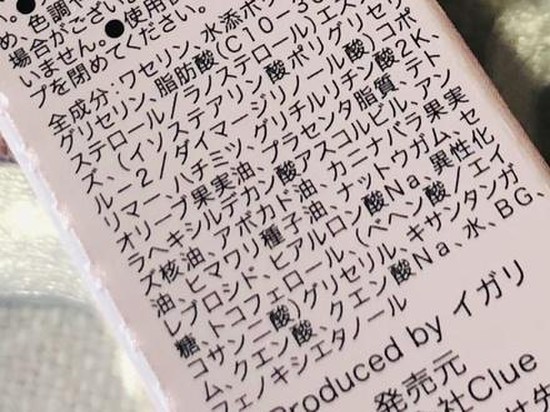 め、色調や
場合がござい
いません。●使用
プを閉めてください。
全成分:ワセリン、水添ポ
グリセリン、脂肪酸(C10-3
ステロール/ラノステロール)エス
ズ、(イソステアリン酸ポリグリセリ
ルー2/ダイマージリノール酸)コポ
リマー、ハチミツ、グリチルリチン酸2K、
オリーブ果実油、プラセンタ脂質、テト
ラヘキシルデカン酸アスコルビル、アン
ズ核油、アボカド油、カニナバラ果実
油、ヒマワリ種子油、ナットウガム、セ
レブロシド、ヒアルロン酸Na、異性化
糖、トコフェロール、(ベヘン酸/エイ
コサン二酸)グリセリル、キサンタンガ
ム、クエン酸、クエン酸Na、水、BG、
フェノキシエタノール
Produced by イガリ
発売元
社Clue